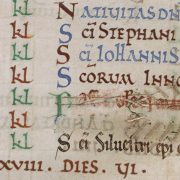 kl Natiuitas dn
kl Sci Stephani
kl Sci Iohannis
kl Scorum Inno
kl
kl Sci Siluestri epi
XXVIII. DIES. VI.